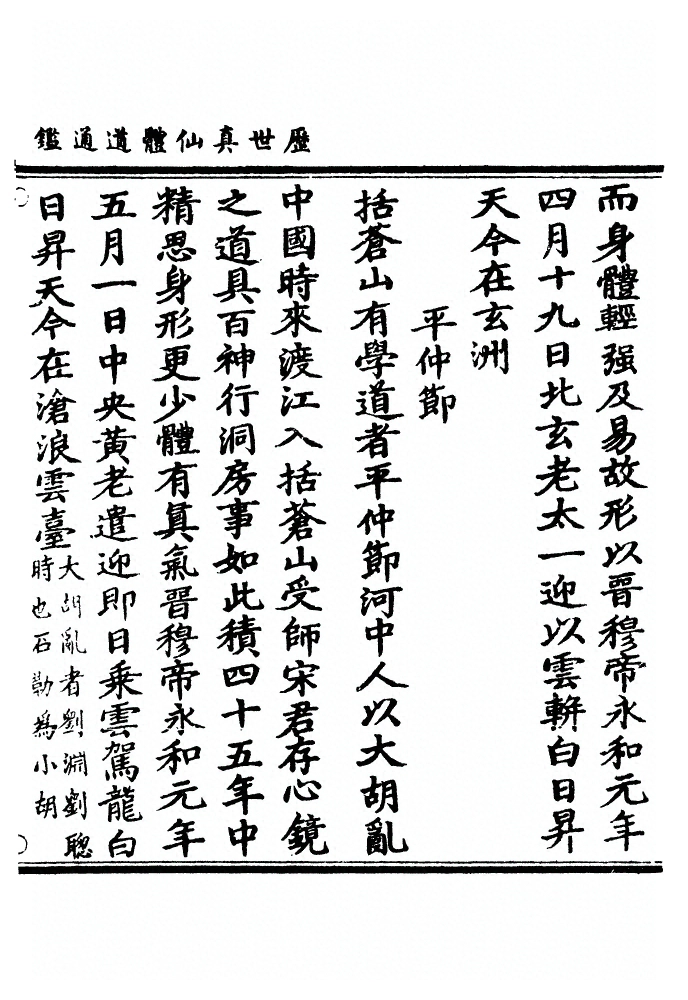 歷世真仙體道通鑑
而身體輕强及易故形以晉穆帝永和元年
四月十九日北玄老太一迎以雲軿白日昇
天今在玄洲
平仲節
括蒼山有學道者平仲節河中人以大胡亂
中國時來渡江入括蒼山受師宋君存心鏡
之道具百神行洞房事如此積四十五年中
精思身形更少體有真氣晉穆帝永和元年
五月一日中央黃老遣迎即日乘雲駕龍白
日昇天今在滄浪雲臺
大胡亂者劉淵劉聰
時也石勒為小胡